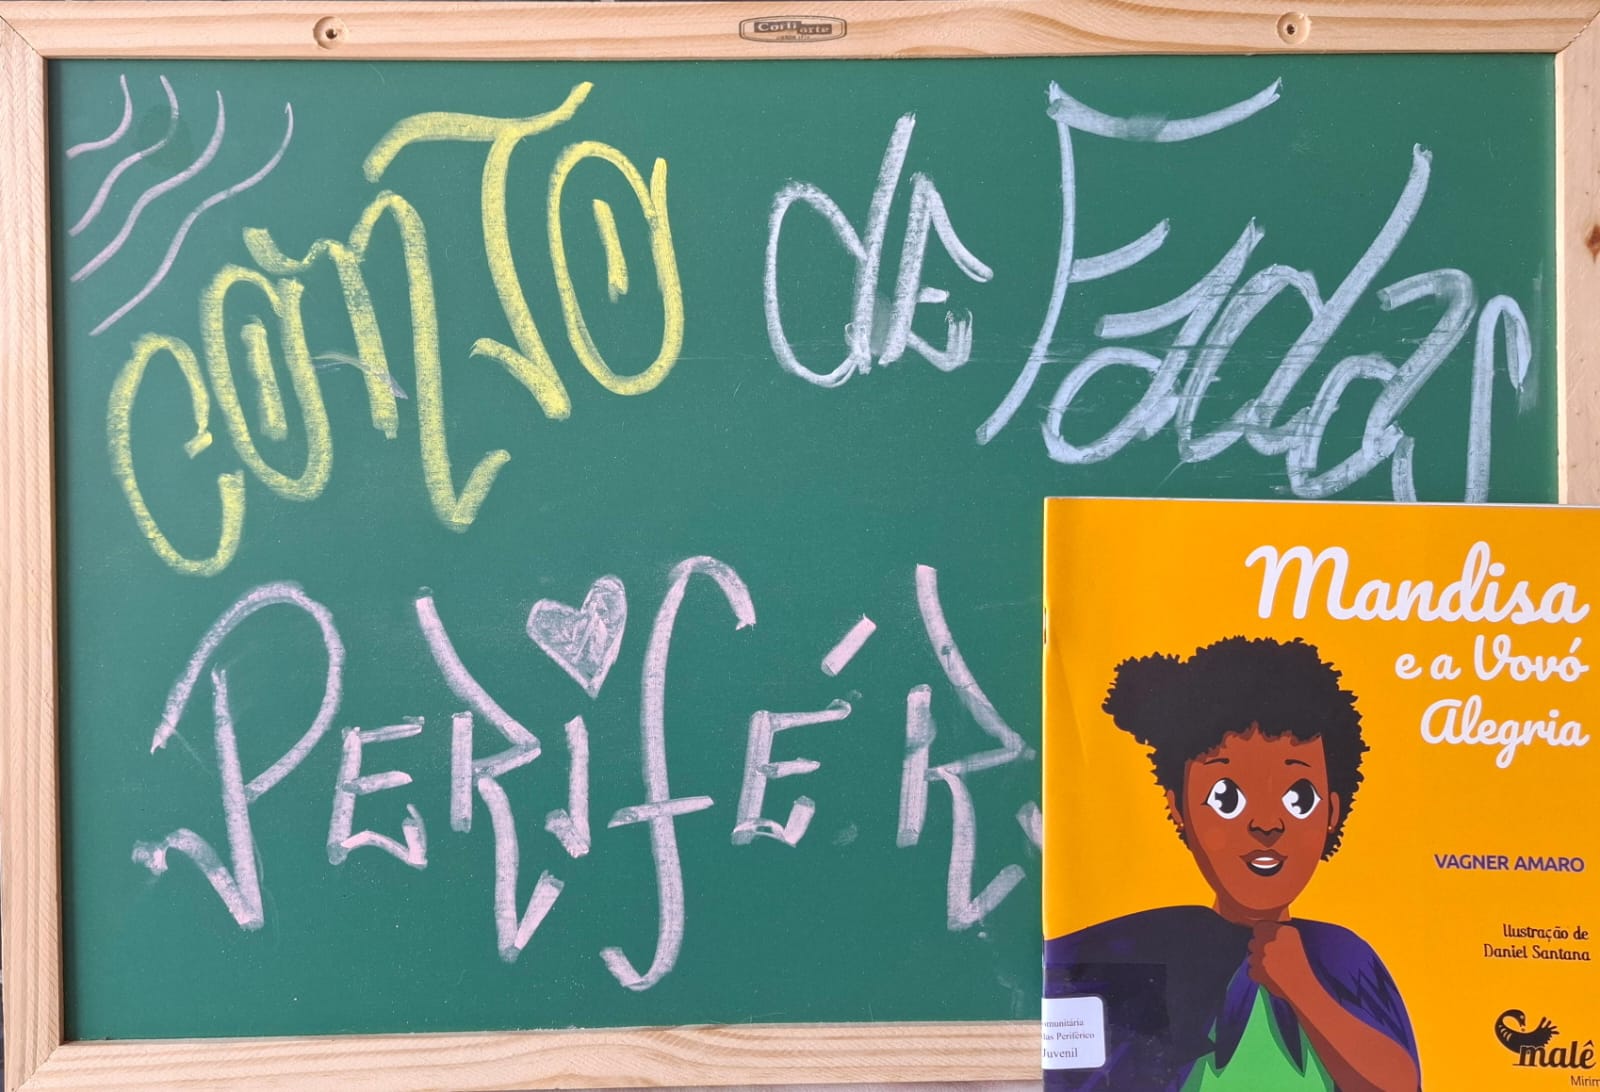 Corti arte
CONTO de Fadas
PERIFÉR
Mandisa
e a Vovó
Alegria
VAGNER AMARO
Ilustração de
Daniel Santana
omunitária
das Periférico
Juvenil
malê
Mirim